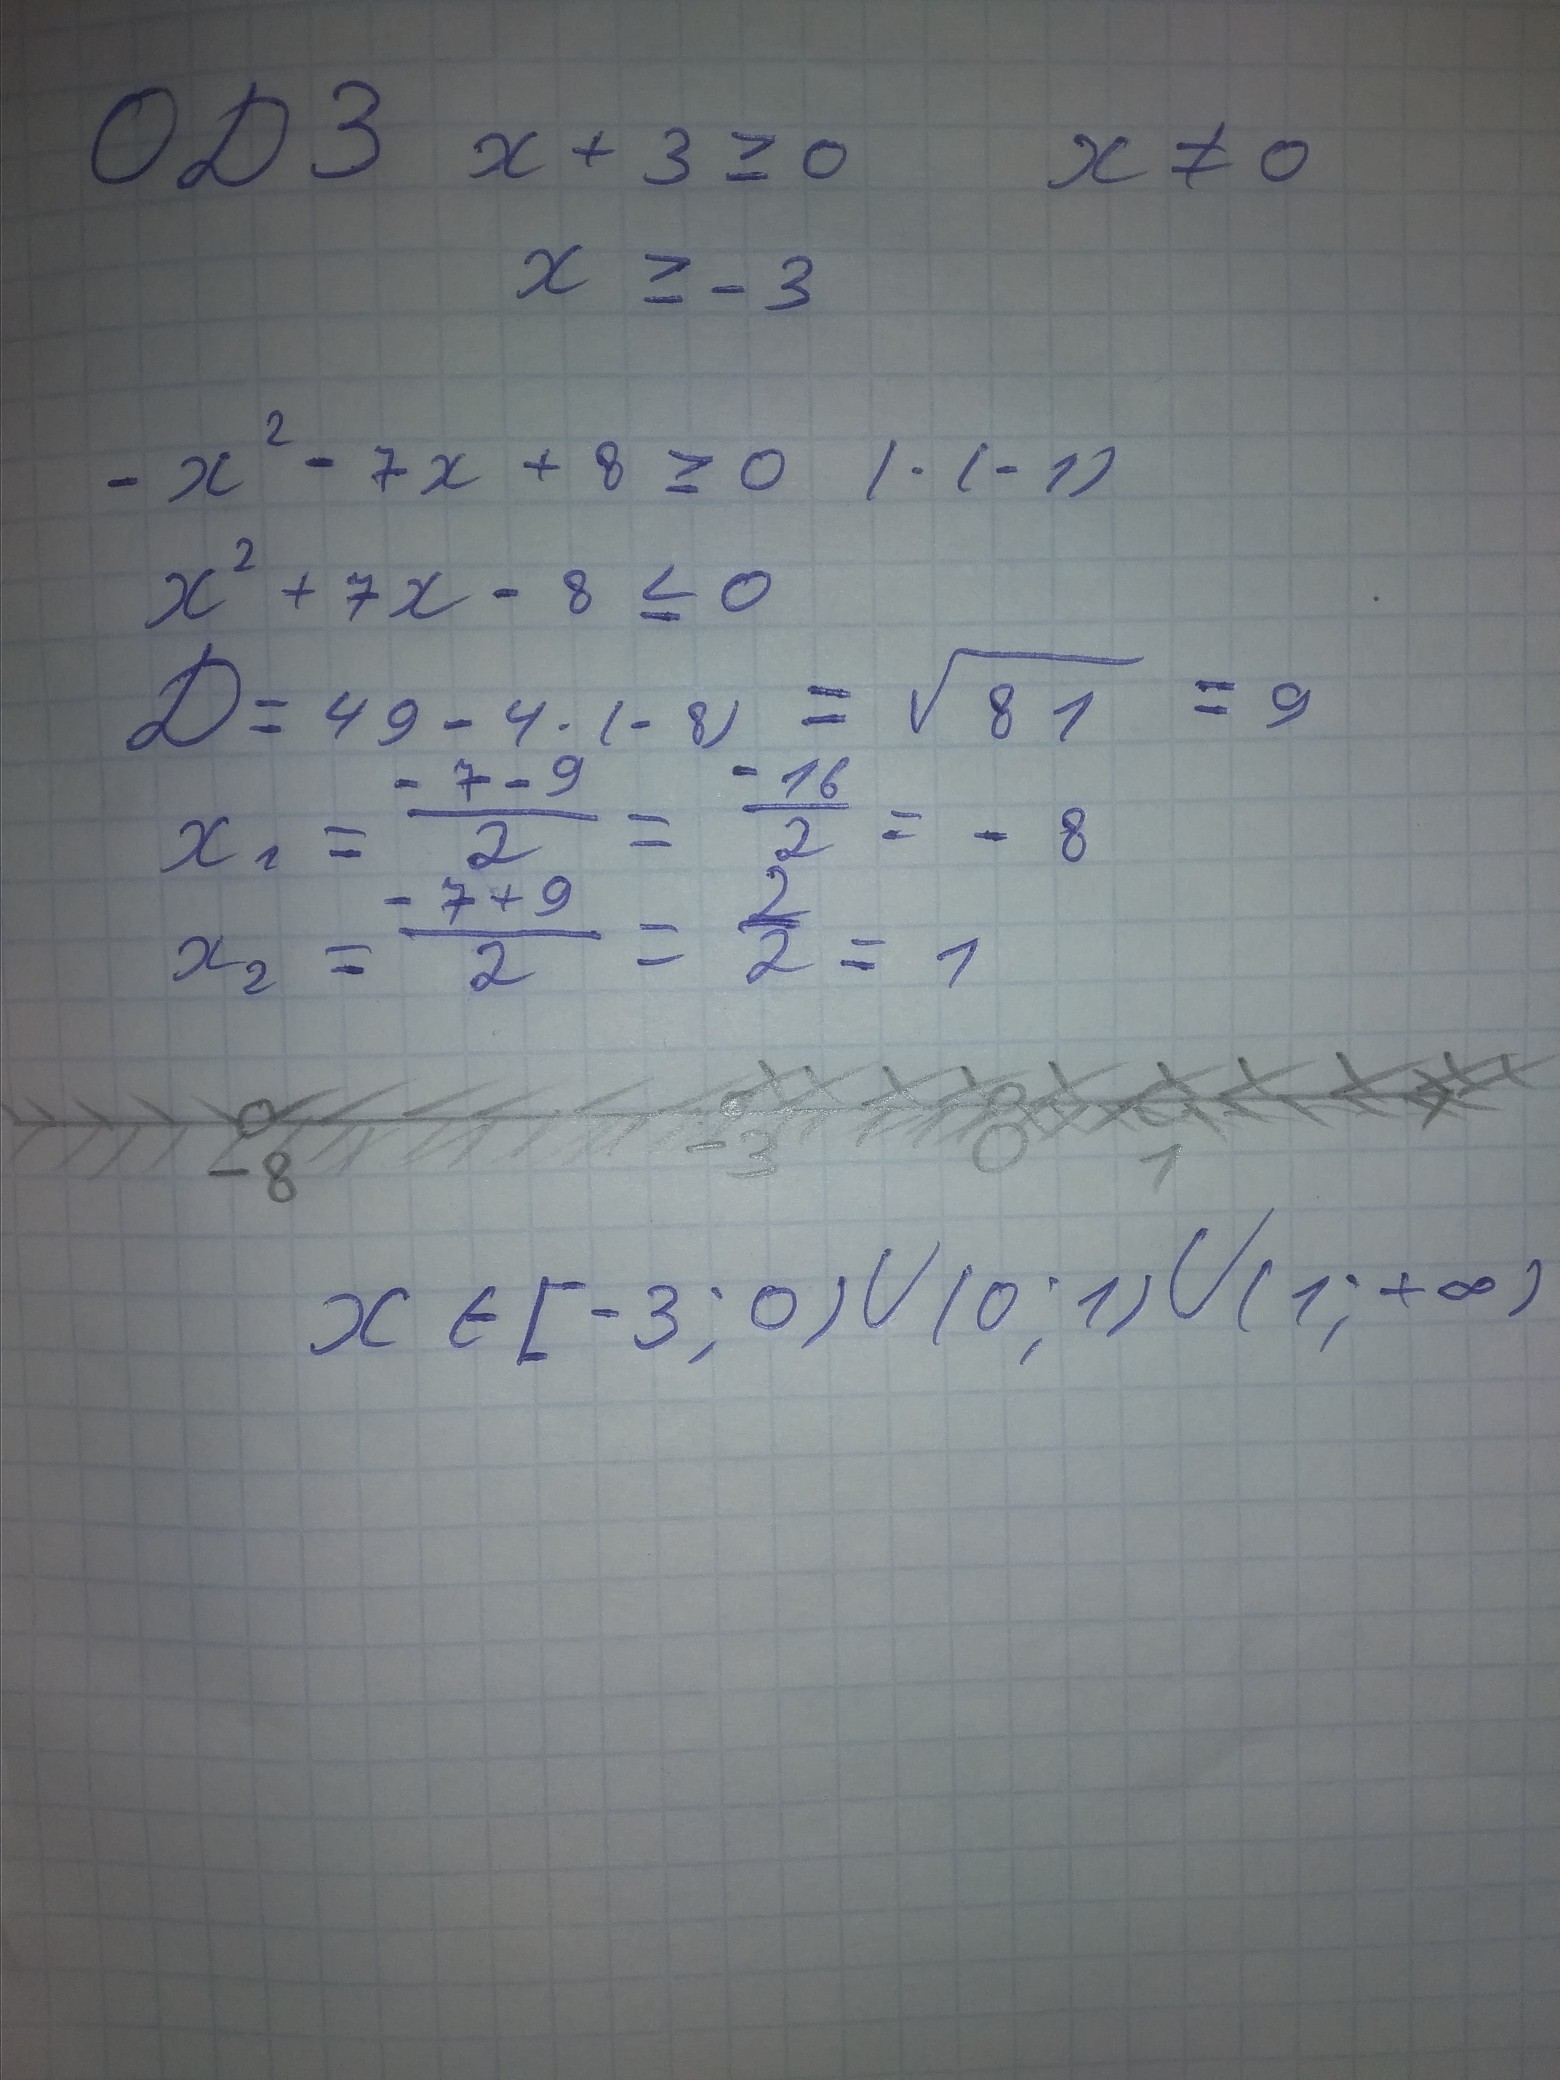 ОДЗ x + 3 ≥ 0 x ≠ 0
x ≥ -3
-x² - 7x + 8 ≥ 0 | · (-1)
x² + 7x - 8 ≤ 0
D = 49 - 4 · (-8) = √81 = 9
x₁ = (-7-9)/2 = -16/2 = -8
x₂ = (-7+9)/2 = 2/2 = 1
-8 -3 0 1
x ∈ [-3; 0) ∪ (0; 1) ∪ (1; +∞)